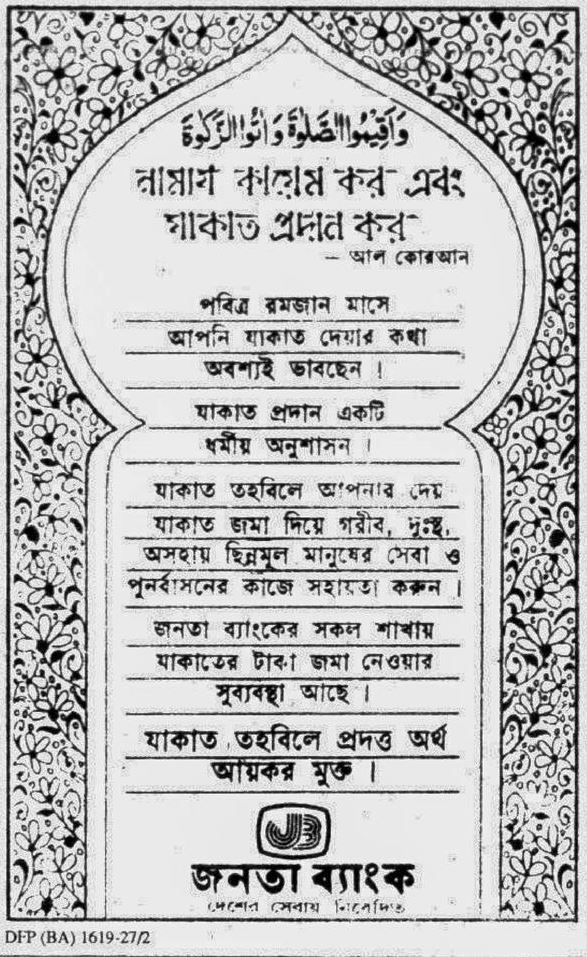 وَاَقِيْمُوا الصَّلٰوةَ وَاٰتُوا الزَّكٰوةَ
নামায কায়েম কর এবং
যাকাত প্রদান কর
— আল কোরআন
পবিত্র রমজান মাসে
আপনি যাকাত দেয়ার কথা
অবশ্যই ভাবছেন ।
যাকাত প্রদান একটি
ধর্মীয় অনুশাসন ।
যাকাত তহবিলে আপনার দেয়
যাকাত জমা দিয়ে গরীব, দুঃস্থ,
অসহায় ছিন্নমূল মানুষের সেবা ও
পুনর্বাসনের কাজে সহায়তা করুন ।
জনতা ব্যাংকের সকল শাখায়
যাকাতের টাকা জমা নেওয়ার
সুব্যবস্থা আছে ।
যাকাত তহবিলে প্রদত্ত অর্থ
আয়কর মুক্ত ।
JB
জনতা ব্যাংক
দেশের সেবায় নিবেদিত
DFP (BA) 1619-27/2